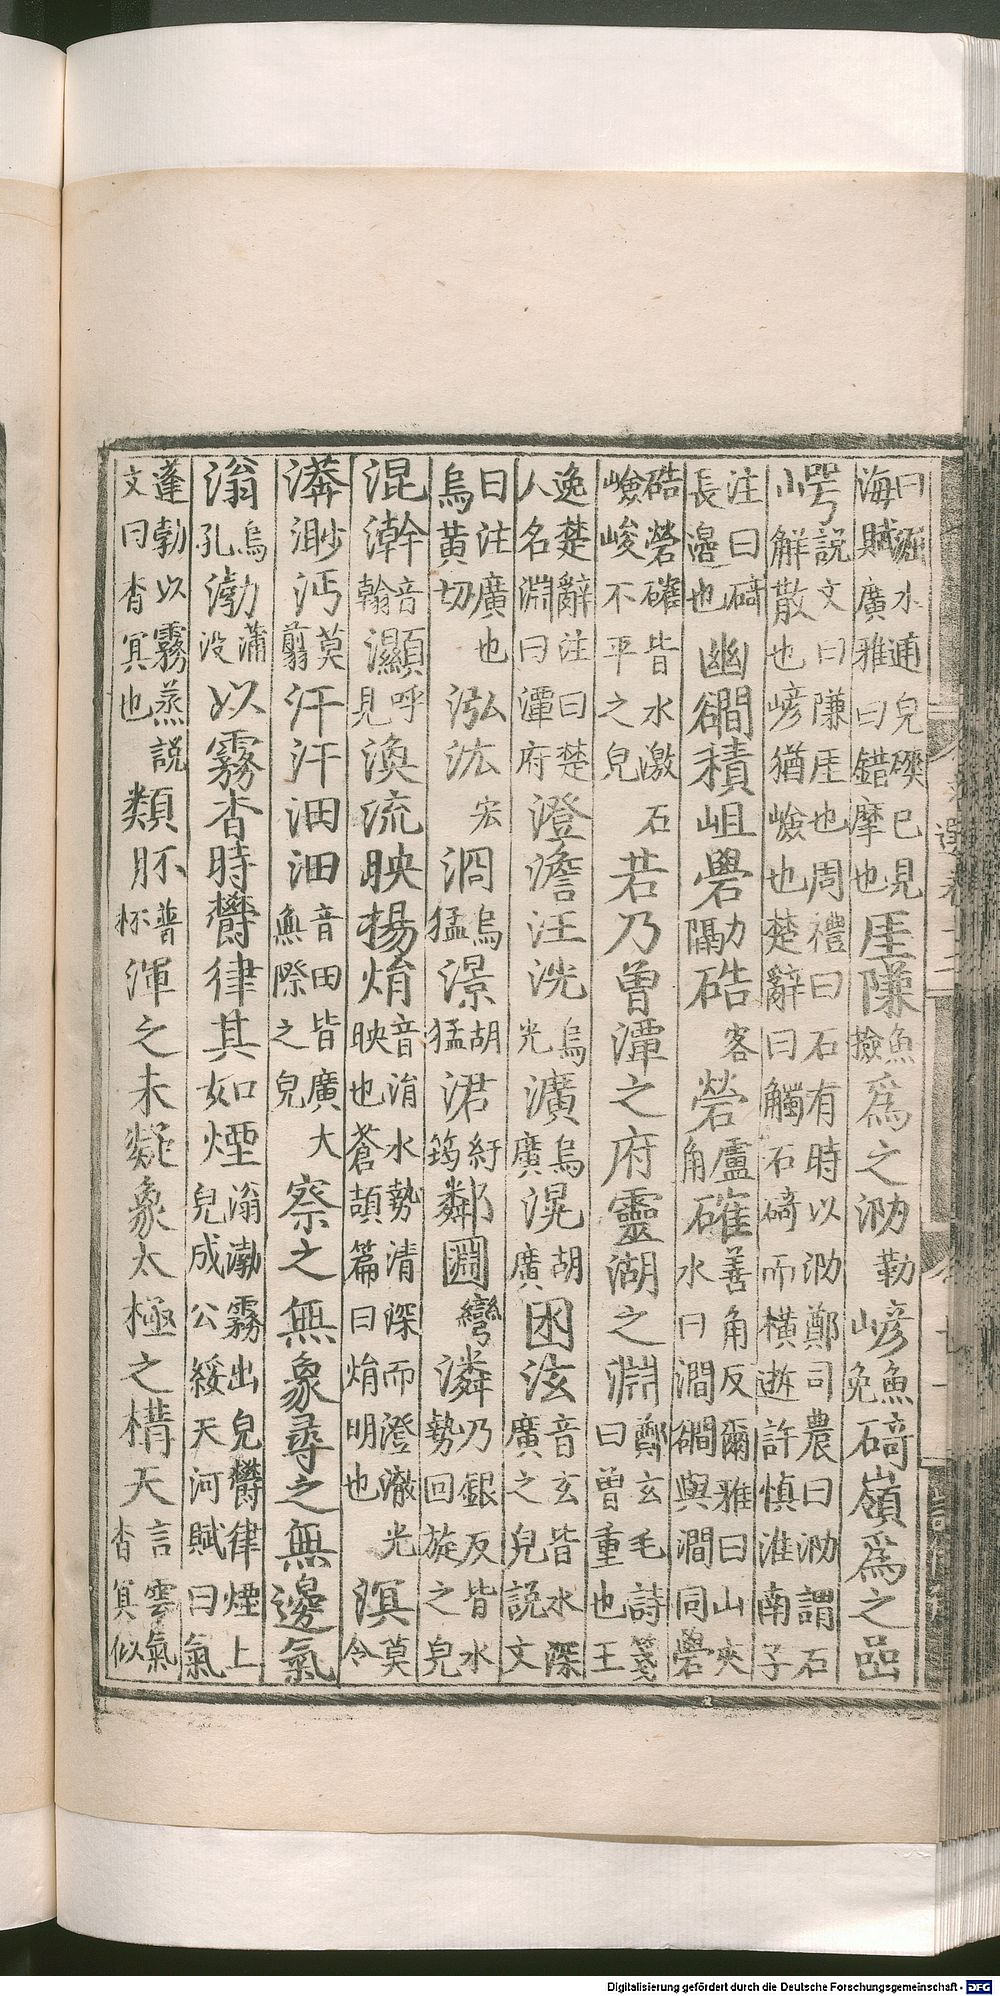 曰溷水通皃礫已見海賦廣雅曰錯摩也厓隒魚撿為之泐勒嵃魚免碕嶺為之嵒
崿說文曰隒厓也周禮曰石有時以泐鄭司農曰泐謂石解散也嵃猶嶮也楚辭曰觸石碕而橫逝許慎淮南子
注曰碕長邊也幽㵎積岨礐力隔硞客䓨盧角礭善角反爾雅曰山夾水曰澗㵎與澗同礐
硞䓨礭皆水激石嶮峻不平之皃若乃曾潭之府靈湖之淵鄭玄毛詩箋曰曾重也王
逸楚辭注曰楚人名淵曰潭府澄澹汪洸烏光瀇烏廣滉胡廣囦泫音玄皆水深廣之皃說文
曰汪廣也烏黃切泓汯宏浻烏猛澋胡猛涒紆筠鄰㘤彎潾乃銀反皆水勢回旋之皃
混澣音翰灦呼見渙流映揚焆音涓水勢清深而澄澈光映也蒼頡篇曰焆明也溟莫令
漭渺沔莫翦汗汗沺沺音田皆廣大無際之皃察之無象尋之無邊氣
滃烏孔渤蒲沒以霧杳時鬱律其如煙滃渤霧出皃鬱律煙上皃成公綏天河賦曰氣
蓬勃以霧蒸說文曰杳冥也類胚普杯渾之未凝象太極之構天言雲氣杳冥似
Digitalisierung gefördert durch die Deutsche Forschungsgemeinschaft - DFG